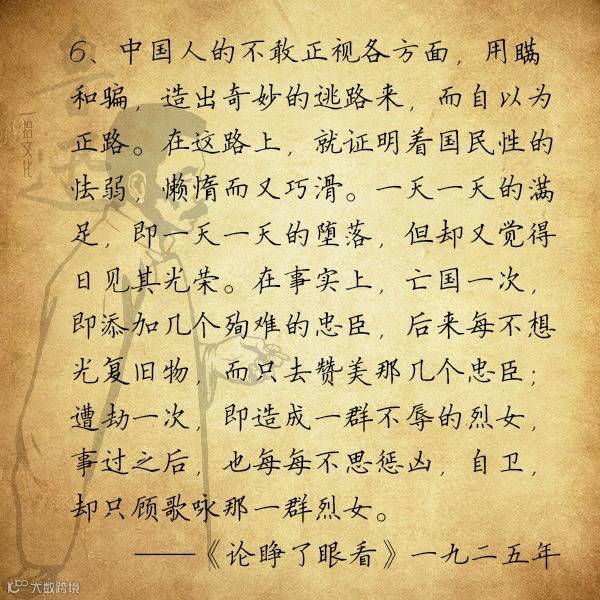 6、中国人的不敢正视各方面，用瞒
和骗，造出奇妙的逃路来，而自以为
正路。在这路上，就证明着国民性的
怯弱，懒惰而又巧滑。一天一天的满
足，即一天一天的堕落，但却又觉得
日见其光荣。在事实上，亡国一次，
即添加几个殉难的忠臣，后来每不想
光复旧物，而只去赞美那几个忠臣；
遭劫一次，即造成一群不辱的烈女，
事过之后，也每每不思惩凶，自卫，
却只顾歌咏那一群烈女。
——《论睁了眼看》一九二五年
拾文化
大数跨境